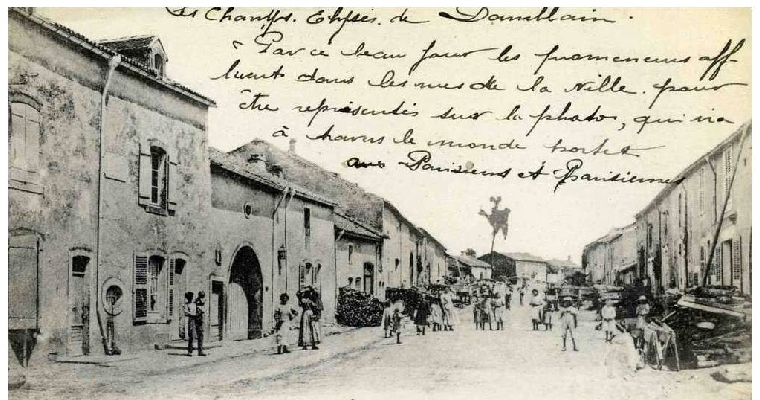 Les Champs. Elysés. de Damblain.
Par ce beau jour les promeneurs aff-
luent dans les rues de la Ville. pour
être représentés sur la photo, qui ira
à travers le monde
aux Parisiens et Parisiennes